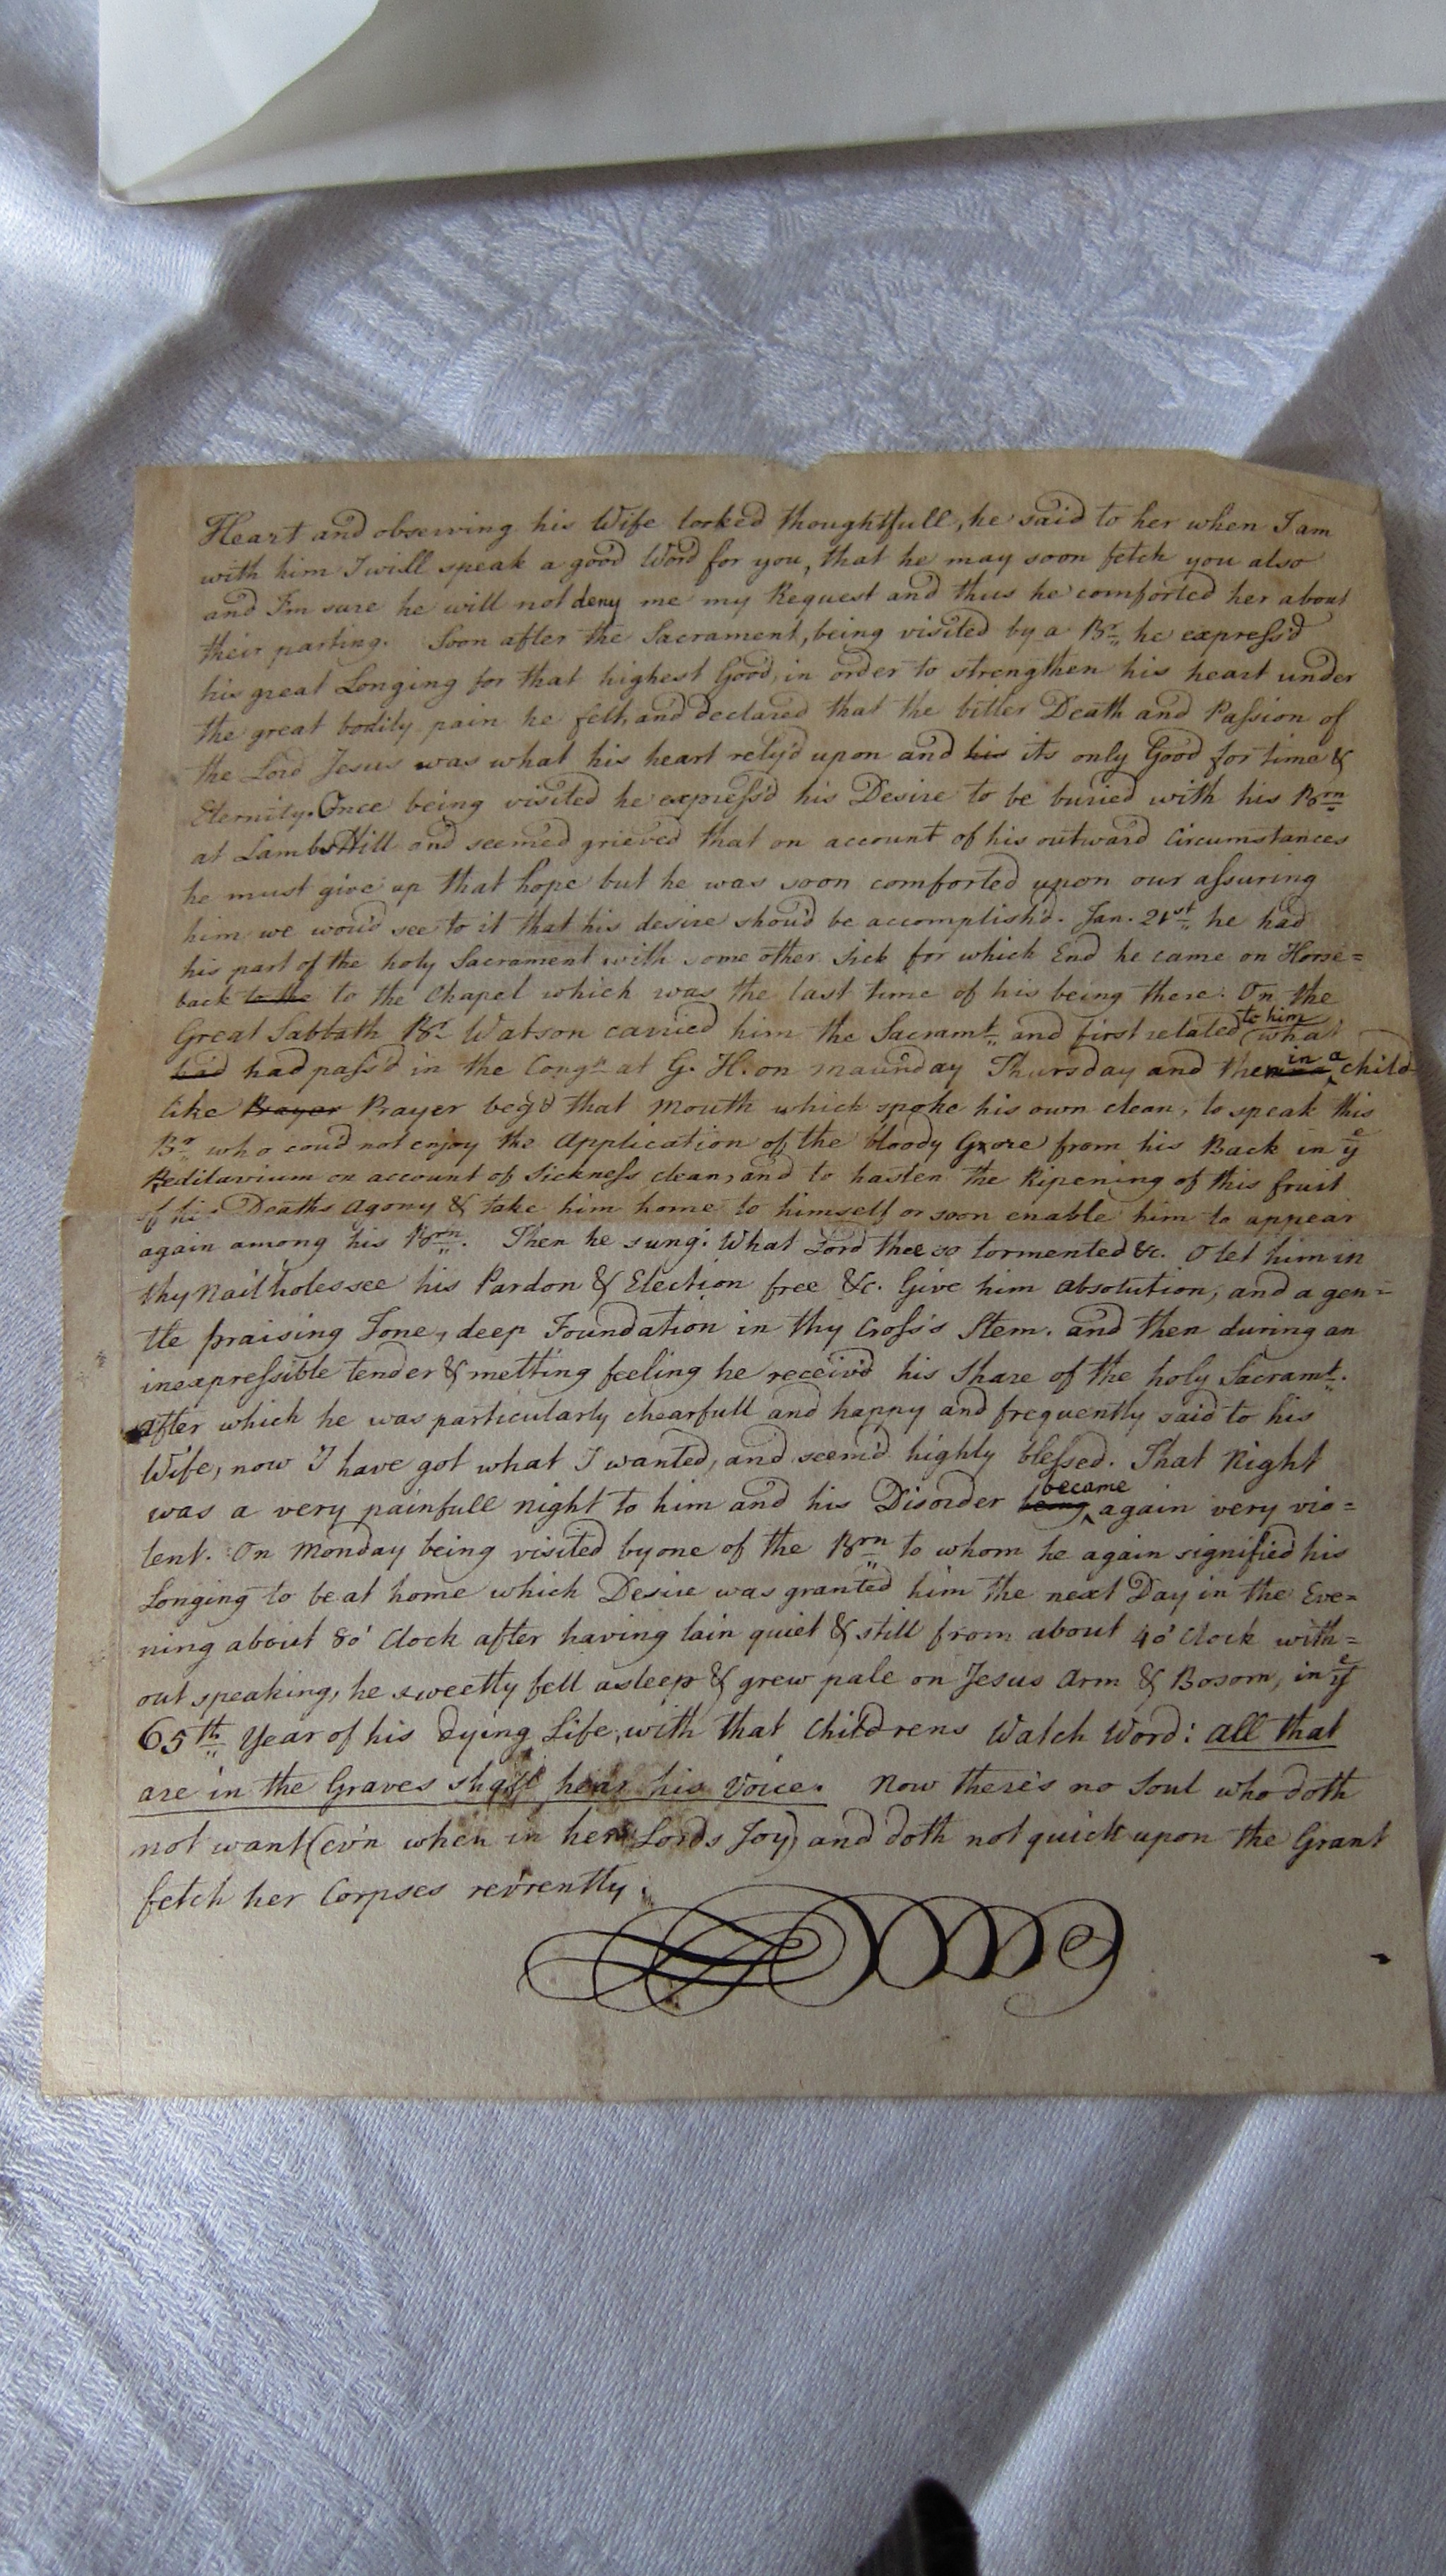 Heart and observing his Wife looked thoughtfull, he said to her when I am
with him I will speak a good Word for you, that he may soon fetch you also
and I'm sure he will not deny me my Request and thus he comforted her about
their parting. Soon after the Sacrament, being visited by a Br. he express'd
his great Longing for that highest Good, in order to strengthen his heart under
the great bodily pain he felt, and declared that the bitter Death and Passion of
the Lord Jesus was what his heart rely'd upon and his its only Good for time &
Eternity. Once being visited he express'd his Desire to be buried with his Brn
at Lambs Hill and seemed grieved that on account of his outward Circumstances
he must give up that hope but he was soon comforted upon our assuring
him we wou'd see to it that his desire shou'd be accomplish'd. Jan. 21st he had
his part of the holy Sacrament with some other Sick for which End he came on Horse=
back to the to the Chapel which was the last time of his being there. On the
Great Sabbath Br. Watson carried him the Sacramt. and first related to him what
had had pass'd in the Congn at G. H. on Maunday Thursday and then in a child
like Prayer Prayer beg'd that Mouth which spoke his own clean, to speak this
Br. who coud not enjoy the Application of the bloody Gore from his Back in ye
Peditavium on account of Sickness clean, and to hasten the Ripening of this fruit
of his Deaths Agony & take him home to himself or soon enable him to appear
again among his Brn. Then he sung: What Lord thee so tormented &c. O let him in
thy Nail holes see his Pardon & Election free &c. Give him Absolution, and a gen=
tle praising Tone, deep Foundation in thy Cross's Stem. and then during an
inexpressible tender & melting feeling he receiv'd his Share of the holy Sacramt.
after which he was particularly chearfull and happy and frequently said to his
Wife, now I have got what I wanted, and seem'd highly blessed. That Night
was a very painfull Night to him and his Disorder being became again very vio=
lent. On Monday being visited by one of the Brn to whom he again signified his
Longing to be at home which Desire was granted him the next Day in the Eve=
ning about 8 o' Clock after having lain quiet & still from about 4 o' Clock with=
out speaking, he sweetly fell asleep & grew pale on Jesus Arm & Bosom, in ye
65th Year of his Dying Life, with that Childrens Watch Word: all that
are in the Graves shall hear his Voice. Now there's no Soul who doth
not want (ev'n when in her Lords Joy) and doth not quick upon the Grant
fetch her Corpses rev'rently.